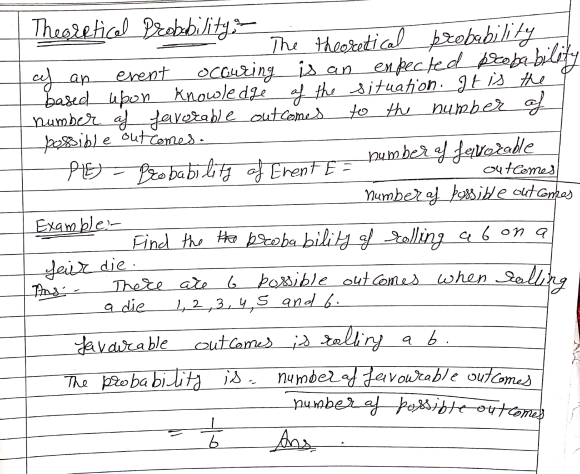 Theoretical Probability:-
The theoretical probability
of an event occuring is an expected probability
based upon knowledge of the situation. It is the
number of favorable outcomes to the number of
possible outcomes.
P(E) - Probability of Event E = number of favorable
outcomes
number of possible outcomes
Example:-
Find the the probability of rolling a 6 on a
fair die.
Ans:- There are 6 possible outcomes when rolling
a die 1, 2, 3, 4, 5 and 6.
favourable outcomes is rolling a 6.
The probability is = number of favourable outcomes
number of possible outcomes
= 1
6 Ans.